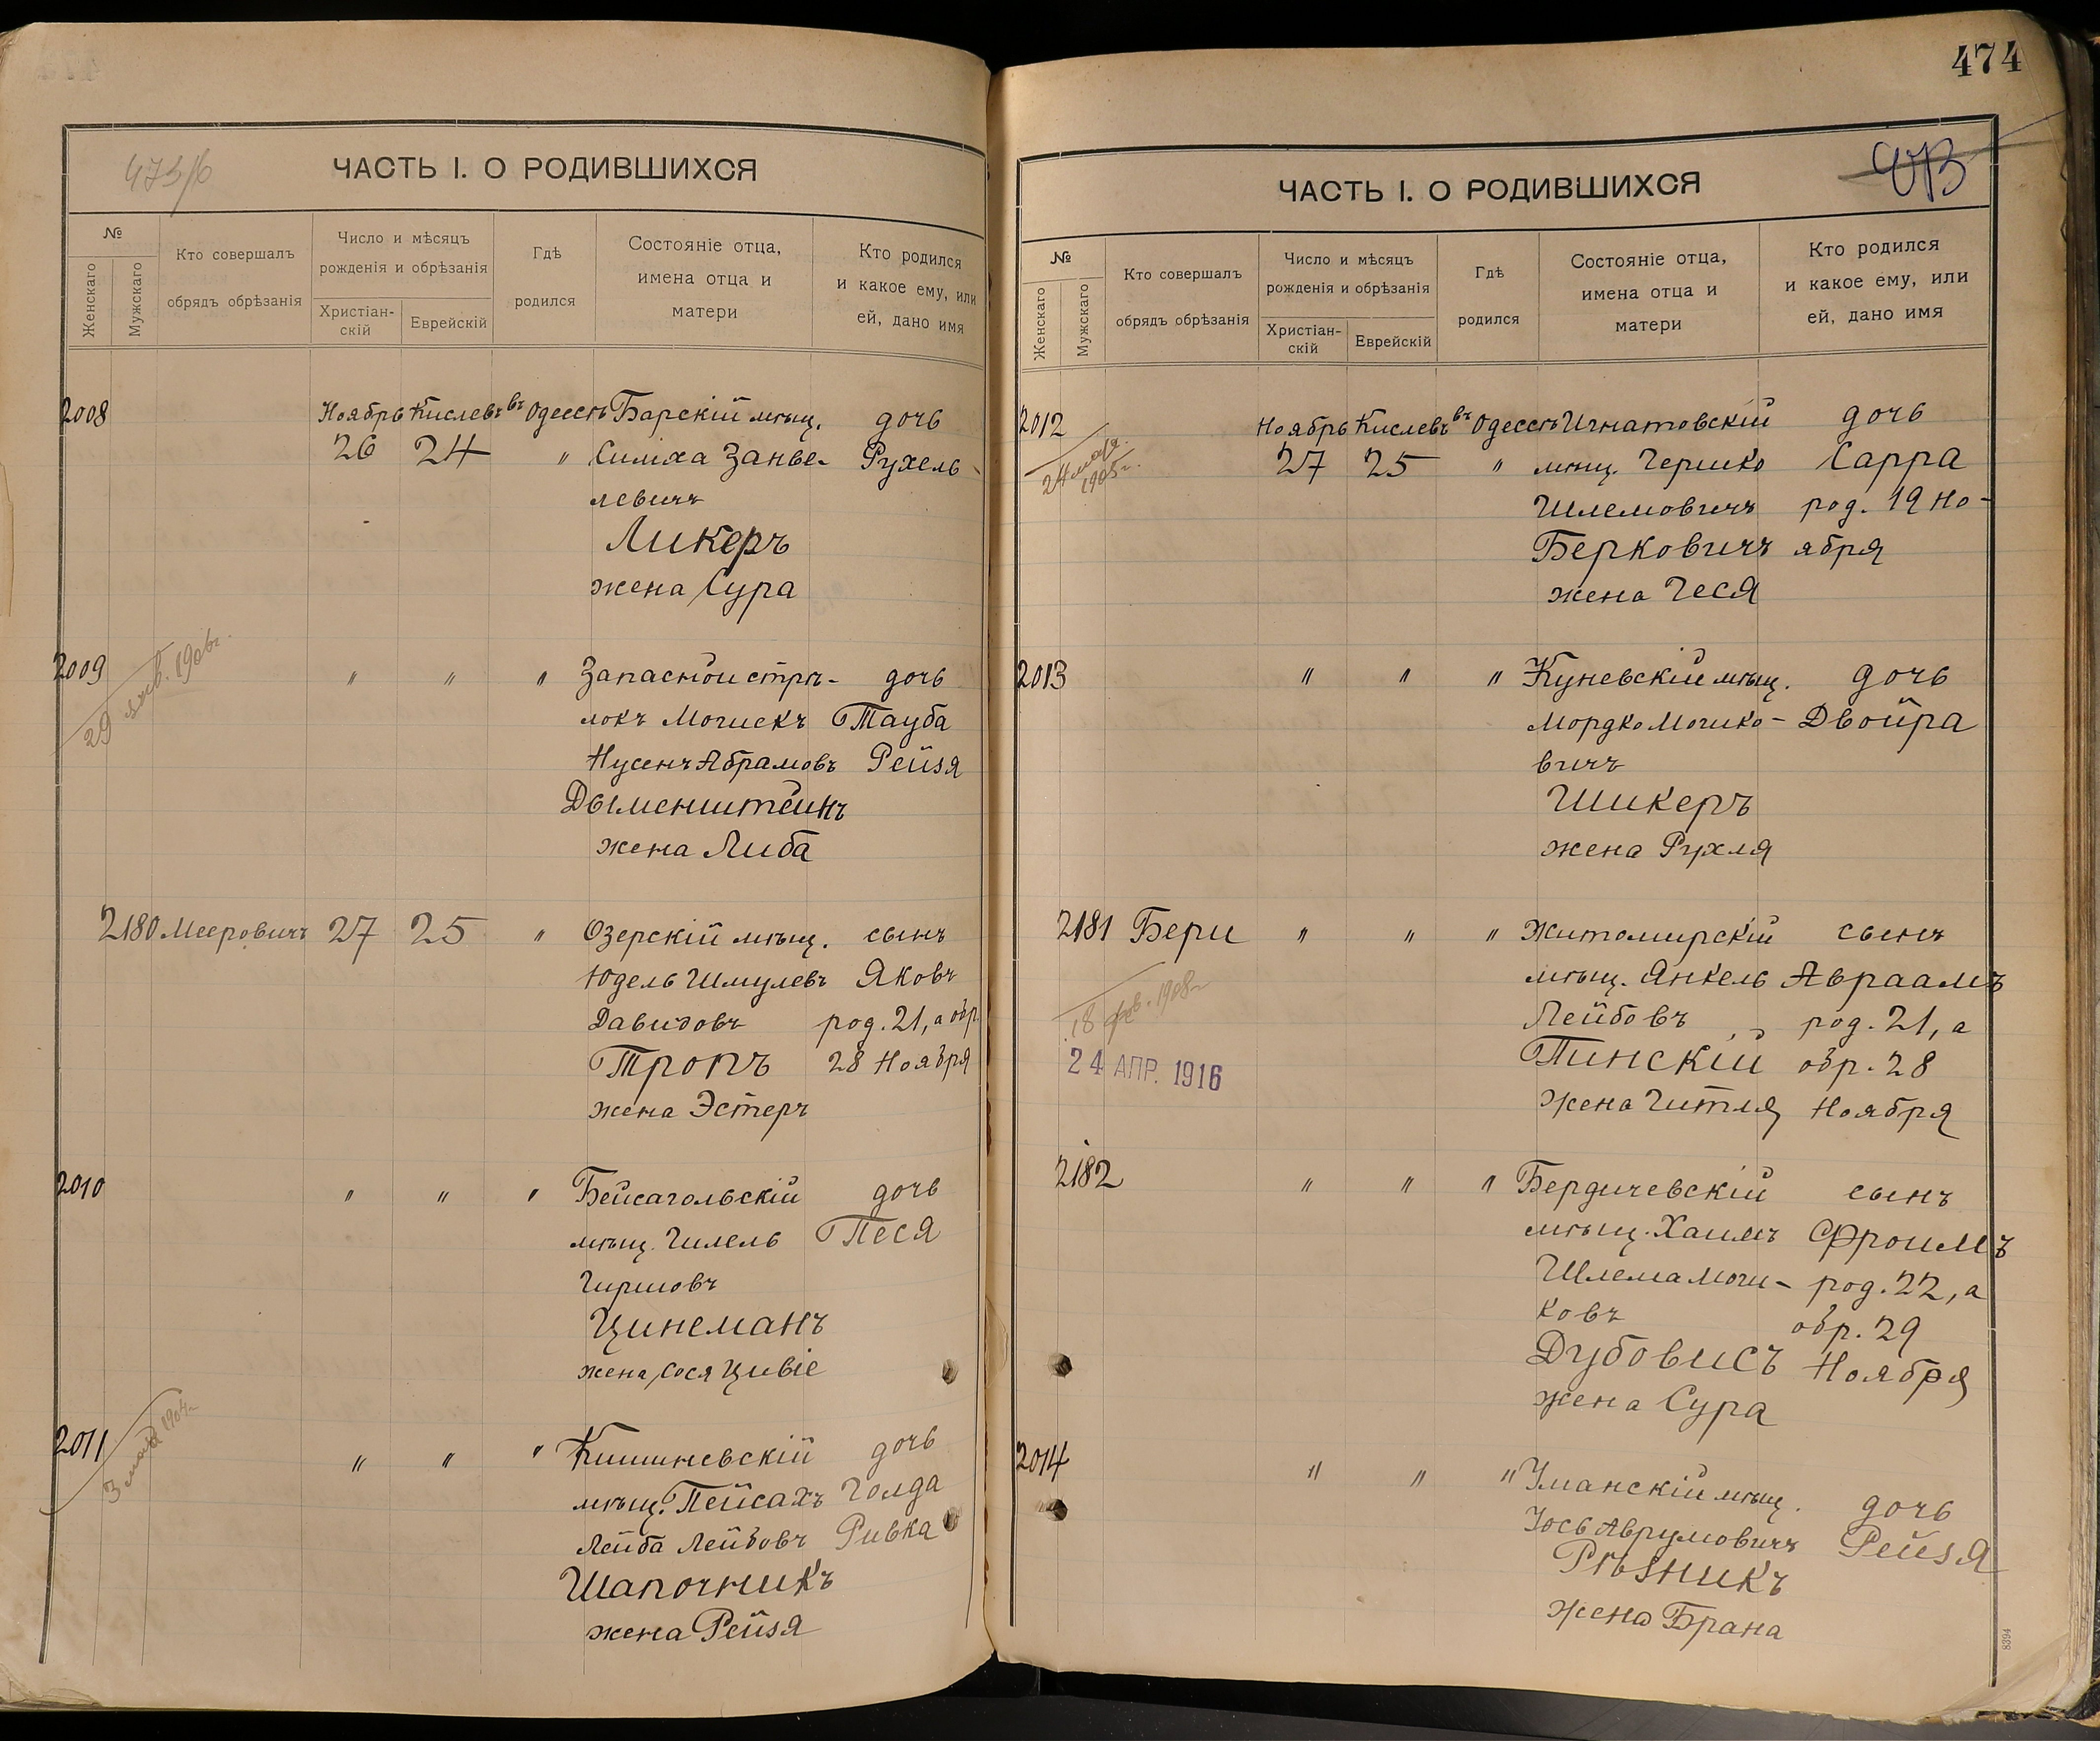 474
473/б
ЧАСТЬ I. О РОДИВШИХСЯ
№
Женскаго
Мужскаго
Кто совершалъ
обрядъ обрѣзанія
Число и мѣсяцъ
рожденія и обрѣзанія
Христіан-
скій
Еврейскій
Гдѣ
родился
Состояніе отца,
имена отца и
матери
Кто родился
и какое ему, или
ей, дано имя
2008 Ноябрь Кислевъ въ Одессѣ Барскій мѣщ. дочь
26 24 " Симха Занве- Рухель
левичъ
Ликеръ
жена Сура
2009 " " " Запасной стрѣ- дочь
29 янв. 1906г.
локъ Мошекъ Тауба
Нусенъ Абрамовъ Рейзя
Дыменштейнъ
жена Либа
2180 Мееровичъ 27 25 " Озерскій мѣщ. сынъ
Юдель Шмулевъ Яковъ
Давидовъ род. 21, а обр.
Тропъ 28 Ноября
жена Эстеръ
2010 " " " Бейсагольскій дочь
мѣщ. Гилель Песя
Гиршовъ
Цинеманъ
жена Сося Цивіе
2011 " " " Кишиневскій дочь
3 мая 1904г.
мѣщ. Пейсахъ Голда
Лейба Лейбовъ Ривка
Шапочникъ
жена Рейзя
ЧАСТЬ I. О РОДИВШИХСЯ
№
Женскаго
Мужскаго
Кто совершалъ
обрядъ обрѣзанія
Число и мѣсяцъ
рожденія и обрѣзанія
Христіан-
скій
Еврейскій
Гдѣ
родился
Состояніе отца,
имена отца и
матери
Кто родился
и какое ему, или
ей, дано имя
2012 Ноябрь Кислевъ въ Одессѣ Игнатовскій дочь
24 1905г.
27 25 " мѣщ. Гершко Сарра
Шлемовичъ род. 19 Но-
Берковичъ ября
жена Геся
2013 " " " Куневскій мѣщ. дочь
Мордко Мошко- Двойра
вичъ
Шикеръ
жена Рухля
2181 Бери " " " Житомирскій сынъ
мѣщ. Янкель Авраамъ
18 фев. 1908г
Лейбовъ род. 21, а
24 АПР. 1916
Пинскій обр. 28
жена Гитля Ноября
2182 " " " Бердичевскій сынъ
мѣщ. Хаимъ Фроимъ
Шлема Мош- род. 22, а
ковъ обр. 29
Дубовисъ Ноября
жена Сура
2014 " " " Уманскій мѣщ. дочь
Іось Аврумовичъ Рейзя
Рѣзникъ
жена Брана
8394